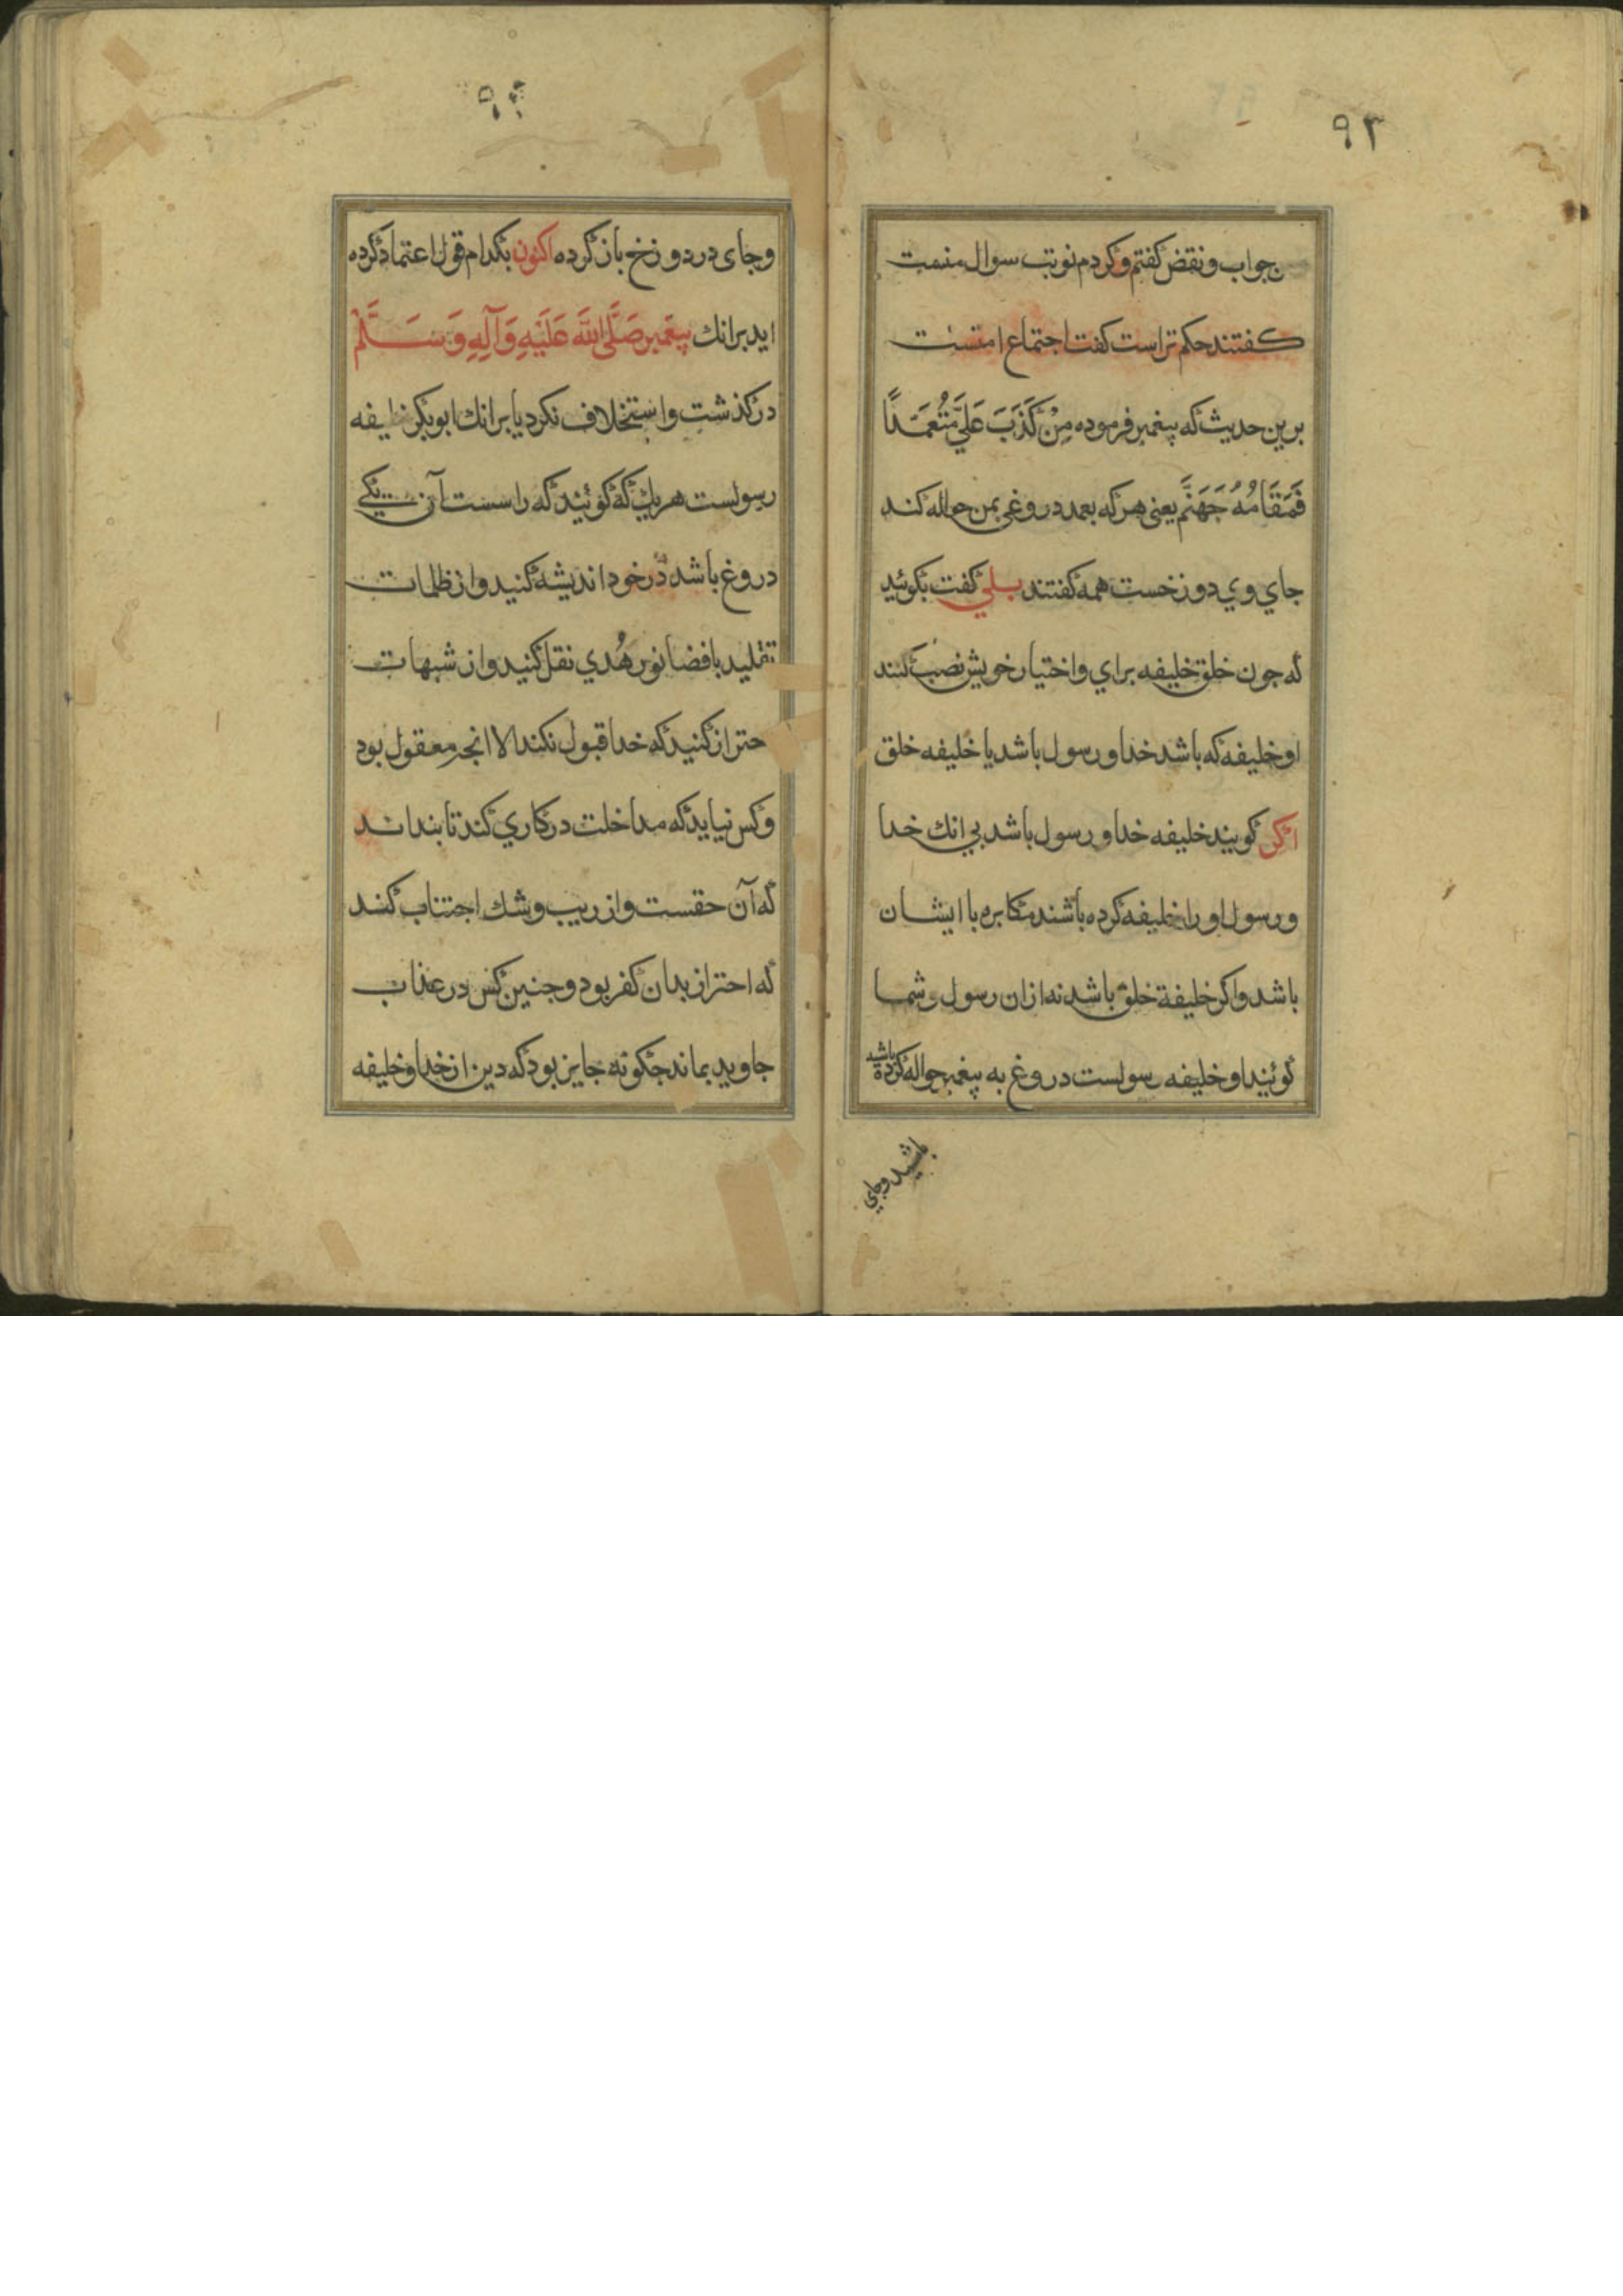 ۹۳
جواب و نقض گفتم و کردم نوبت سوال منست
کفتند حکم تراست کفت اجتماع امتست
برین حدیث که پیغمبر فرموده مِنْ کَذَبَ عَلَيَّ مُتَعَمِّدًا
فَمَقَامُهُ جَهَنَّم یعنی هرکه بعمد دروغی بمن حواله کند
جاي وي دوزخست همه کفتند بلي کفت بکوئید
که جون خلق خلیفه براي و اختیار خویش نصب کنند
او خلیفه که باشد خدا و رسول باشد یا خلیفه خلق
اکر کویند خلیفه خدا و رسول باشد بي انك خدا
و رسول او را خلیفه کرده باشند مکابره با ایشان
باشد و اکر خلیفة خلق باشد نه ازان رسول و شما
کوئید او خلیفه رسولست دروغ به پیغمبر حواله کرده باشید
باشید و جاي
و جای در دوزخ باز کرده اکنون بکدام قول اعتماد کرده
اید برانك پیغمبر صَلَّی اللّٰه عَلَیْهِ وَآلِهِ وَسَلَّمْ
درکذشت و استخلاف نکرد یا برانك ابوبکر خلیفه
رسولست هر یك که کوئید که راسست آن یکے
دروغ باشد در خود اندیشه کنید و از ظلمات
تقلید بافضا نور هُدي نقل کنید و از شبهات
حتراز کنید که خدا قبول نکند الا انجه معقول بود
و کس نیاید که مداخلت در کاري کند تا بنداند
که آن حقست و از ریب و شك اجتناب کنند
که احتراز بدان کفر بود و جنین کس در عذاب
جاوید بماند جکونه جایز بود که دین از خدا و خلیفه